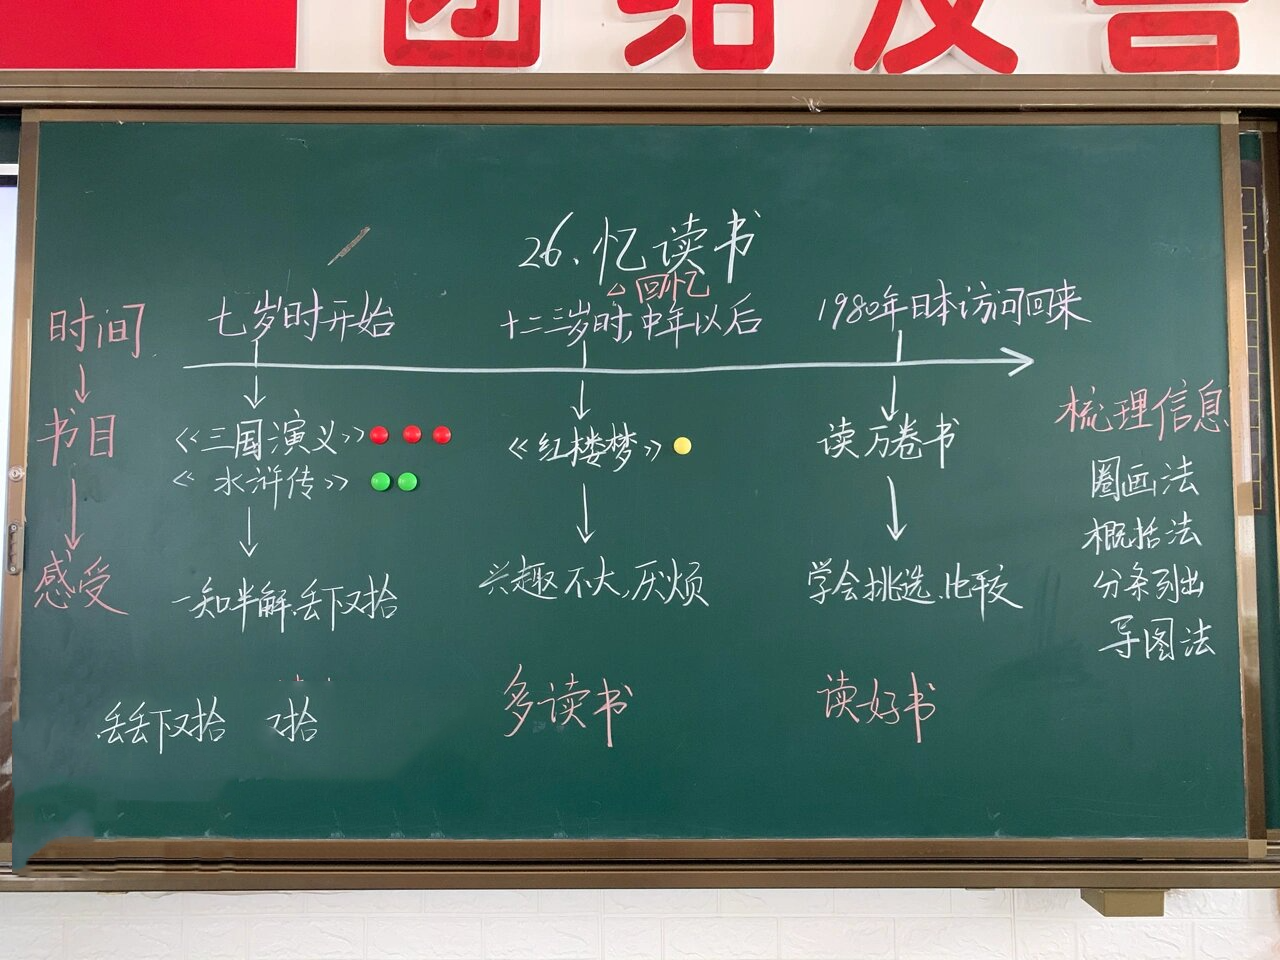 团结友善
26、忆读书
回忆
时间
七岁时开始
十二三岁时,中年以后
1980年日本访问回来
书目
《三国演义》
《水浒传》
《红楼梦》
读万卷书
感受
一知半解、丢下又拾
兴趣不大,厌烦
学会挑选、比较
丢丢下又拾 又拾
多读书
读好书
梳理信息
圈画法
概括法
分条列出
导图法